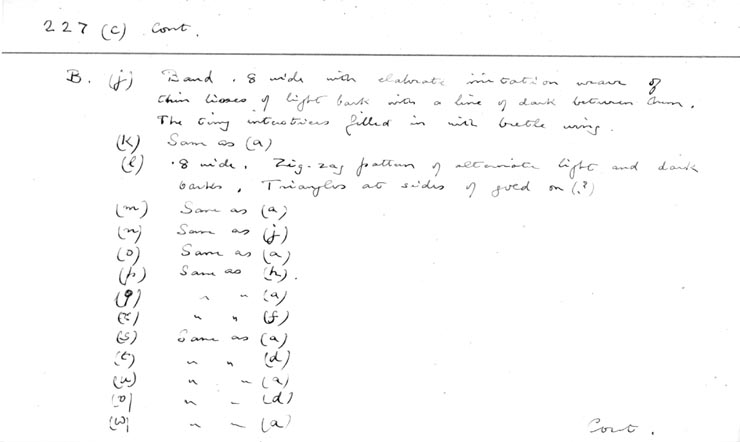 227 (c) Cont.
B. (j) Band .8 wide with elaborate imitation weave of
thin pieces of light bark with a line of dark between them.
The tiny interstices filled in with beetle wing.
(k) Same as (a)
(l) .8 wide. Zig-zag pattern of alternate light and dark
barks, Triangles at sides of on (?)
(m) Same as (a)
(n) Same as (j)
(o) Same as (a)
(p) Same as (h).
(q) " " (a)
(r) " " (f)
(s) Same as (a)
(t) " " (d)
(u) " " (a)
(v) " " (d)
(w) " " (a)
Cont.